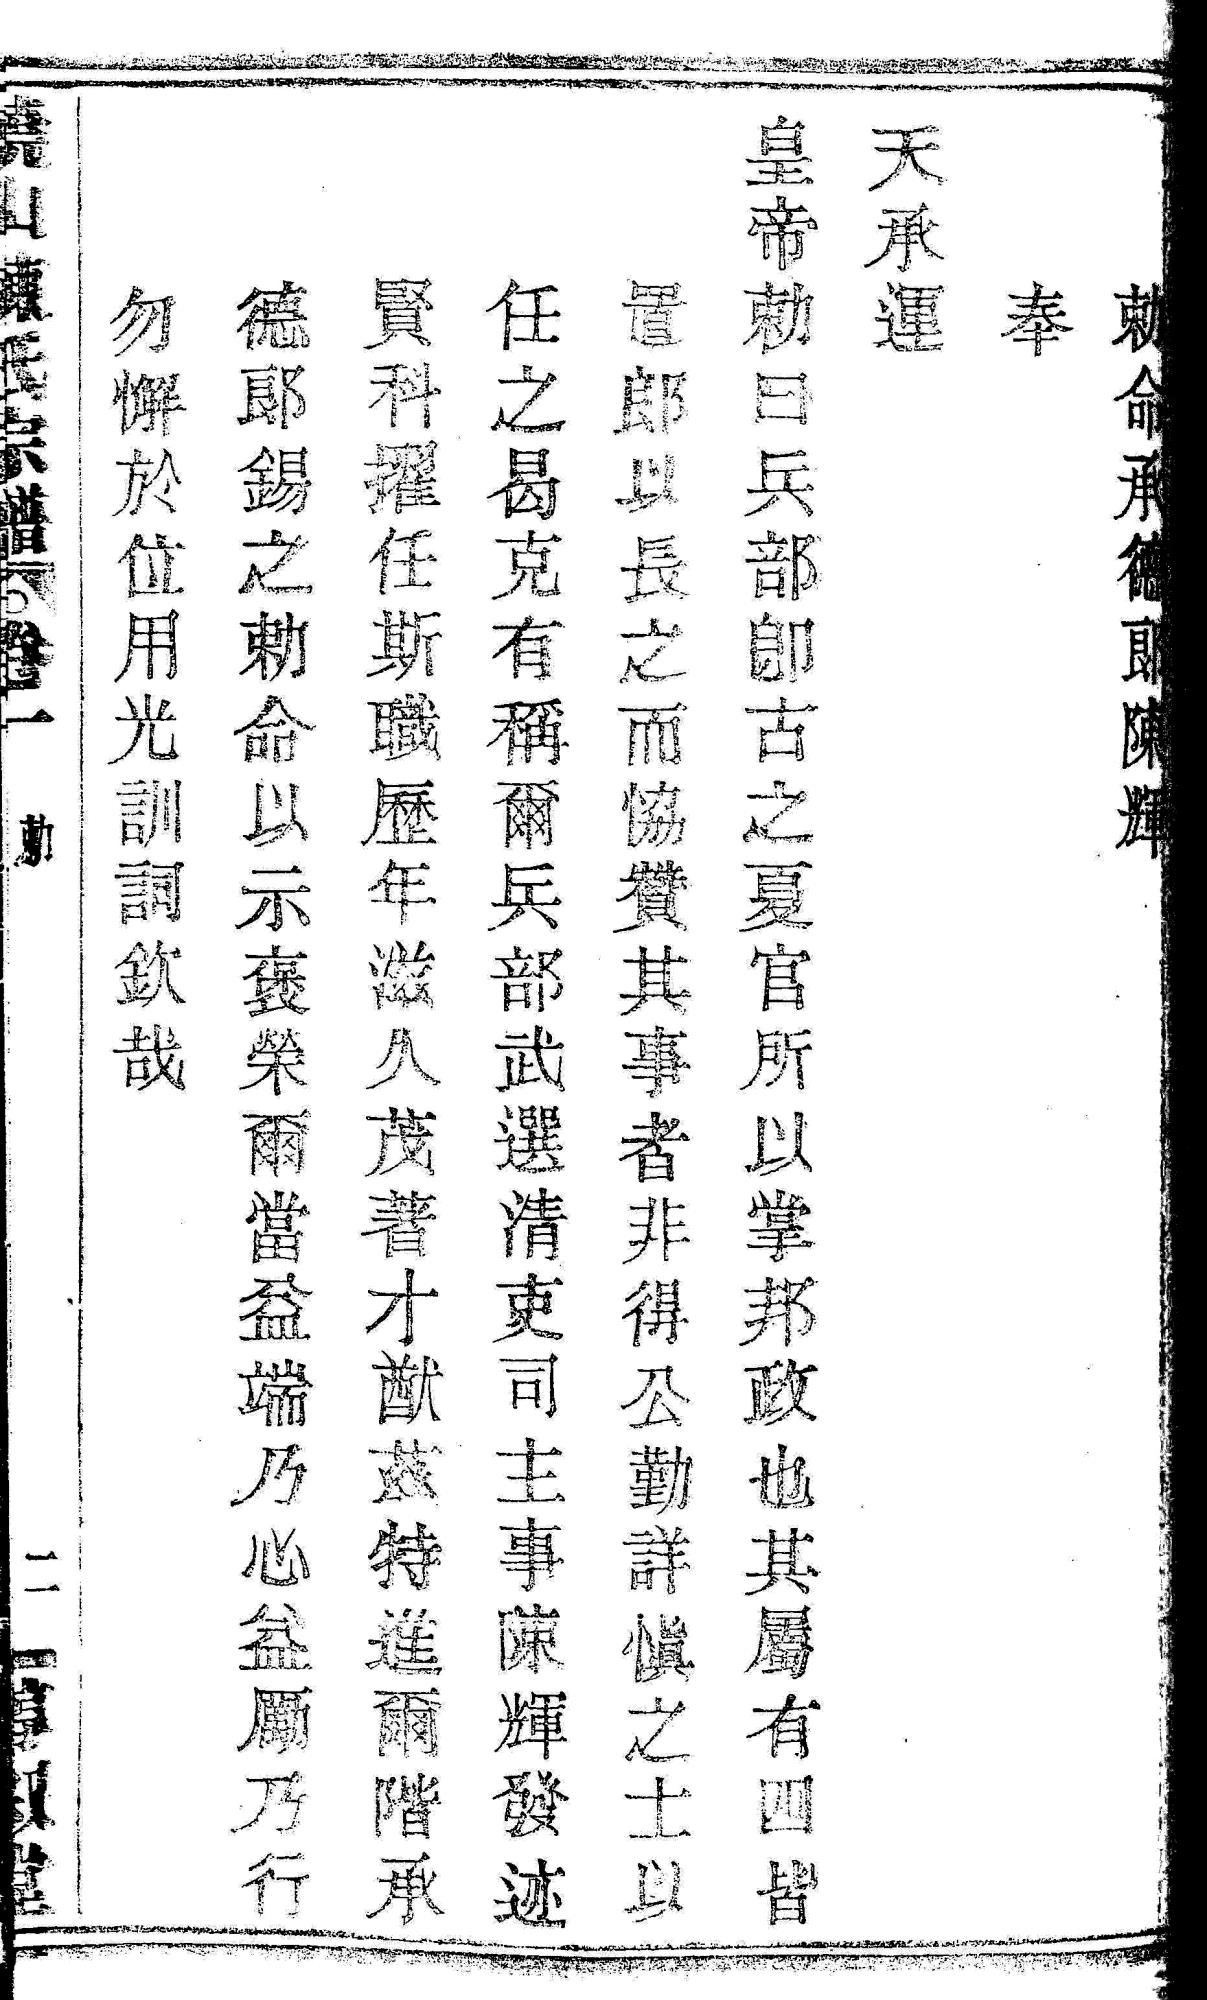 勅命承德郎陳輝
奉
天承運
皇帝勅曰兵部卽古之夏官所以掌邦政也其屬有四皆
置郎以長之而恊贊其事者非得公勤詳愼之士以
任之曷克有稱爾兵部武選清吏司主事陳輝發迹
賢科擢任斯職歷年滋久茂著才猷茲特進爾階承
德郎錫之勅命以示褒榮爾當益端乃心益勵乃行
勿懈於位用光訓詞欽哉
山陳氏宗譜 卷一 勅 二